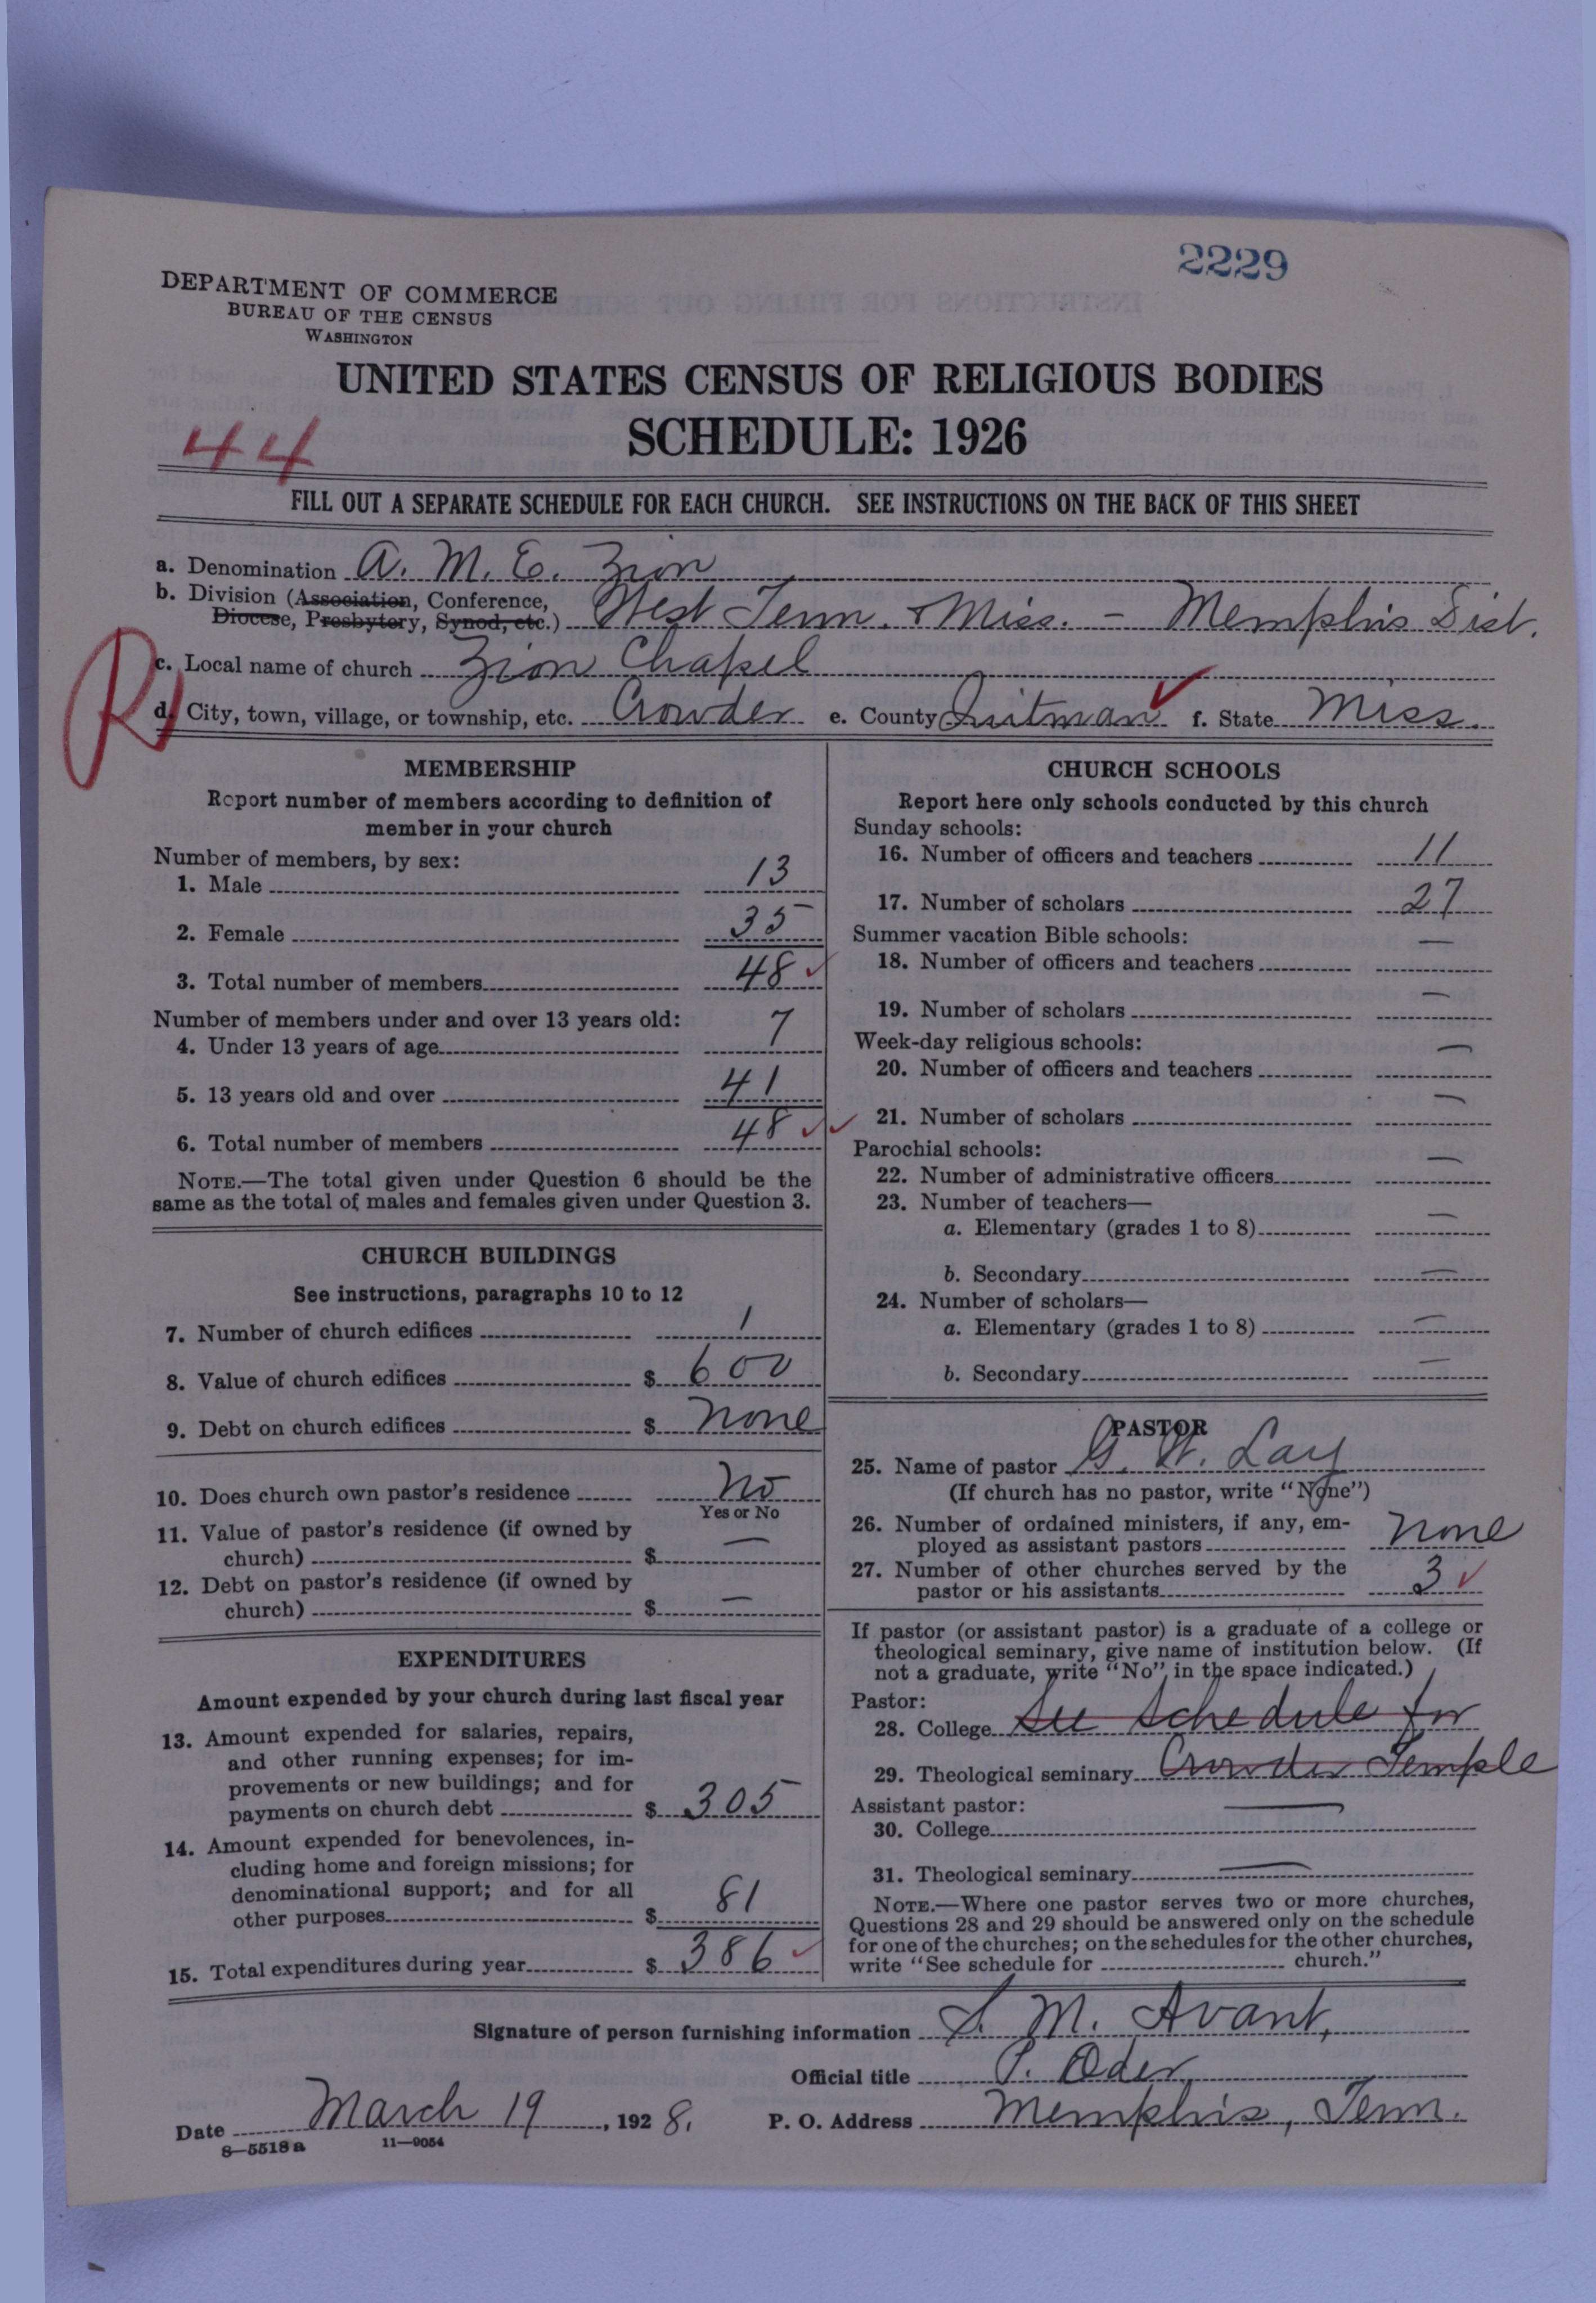 2229
DEPARTMENT OF COMMERCE
BUREAU OF THE CENSUS
WASHINGTON
UNITED STATES CENSUS OF RELIGIOUS BODIES
SCHEDULE: 1926
44
FILL OUT A SEPARATE SCHEDULE FOR EACH CHURCH. SEE INSTRUCTIONS ON THE BACK OF THIS SHEET
a. Denomination A. M. E. Zion
b. Division (Association, Conference, Diocese, Presbytery, Synod, etc.) West Tenn. & Miss. - Memphis Dist.
R
c. Local name of church Zion Chapel
d. City, town, village, or township, etc. Crowder e. County Quitman ✓ f. State Miss.
MEMBERSHIP
Report number of members according to definition of
member in your church
Number of members, by sex:
1. Male 13
2. Female 35
3. Total number of members 48 ✓
Number of members under and over 13 years old:
4. Under 13 years of age 7
5. 13 years old and over 41
6. Total number of members 48 ✓✓
NOTE.—The total given under Question 6 should be the
same as the total of males and females given under Question 3.
CHURCH BUILDINGS
See instructions, paragraphs 10 to 12
7. Number of church edifices 1
8. Value of church edifices $ 600
9. Debt on church edifices $ none
10. Does church own pastor's residence No
Yes or No
11. Value of pastor's residence (if owned by
church) $ —
12. Debt on pastor's residence (if owned by
church) $ —
EXPENDITURES
Amount expended by your church during last fiscal year
13. Amount expended for salaries, repairs,
and other running expenses; for im-
provements or new buildings; and for
payments on church debt $ 305
14. Amount expended for benevolences, in-
cluding home and foreign missions; for
denominational support; and for all
other purposes $ 81
15. Total expenditures during year $ 386 ✓
CHURCH SCHOOLS
Report here only schools conducted by this church
Sunday schools:
16. Number of officers and teachers 11
17. Number of scholars 27
Summer vacation Bible schools:
18. Number of officers and teachers —
19. Number of scholars —
Week-day religious schools:
20. Number of officers and teachers —
21. Number of scholars —
Parochial schools:
22. Number of administrative officers —
23. Number of teachers—
a. Elementary (grades 1 to 8) —
b. Secondary —
24. Number of scholars—
a. Elementary (grades 1 to 8) —
b. Secondary —
PASTOR
25. Name of pastor G. W. Lay
(If church has no pastor, write "None")
26. Number of ordained ministers, if any, em-
ployed as assistant pastors none
27. Number of other churches served by the
pastor or his assistants 3 ✓
If pastor (or assistant pastor) is a graduate of a college or
theological seminary, give name of institution below. (If
not a graduate, write "No" in the space indicated.)
Pastor:
28. College See Schedule for
29. Theological seminary Crowder Temple
Assistant pastor:
30. College —
31. Theological seminary —
NOTE.—Where one pastor serves two or more churches,
Questions 28 and 29 should be answered only on the schedule
for one of the churches; on the schedules for the other churches,
write "See schedule for church."
Signature of person furnishing information S. M. Avant,
Official title P. Oder
Date March 19, 1928. P. O. Address Memphis, Tenn.
8—5518 a 11—9054